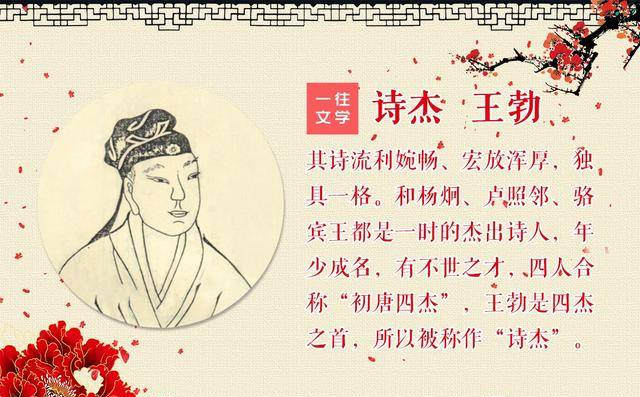 一往
文学
诗杰 王勃
其诗流利婉畅、宏放浑厚，独
具一格。和杨炯、卢照邻、骆
宾王都是一时的杰出诗人，年
少成名，有不世之才，四人合
称“初唐四杰”，王勃是四杰
之首，所以被称作“诗杰”。